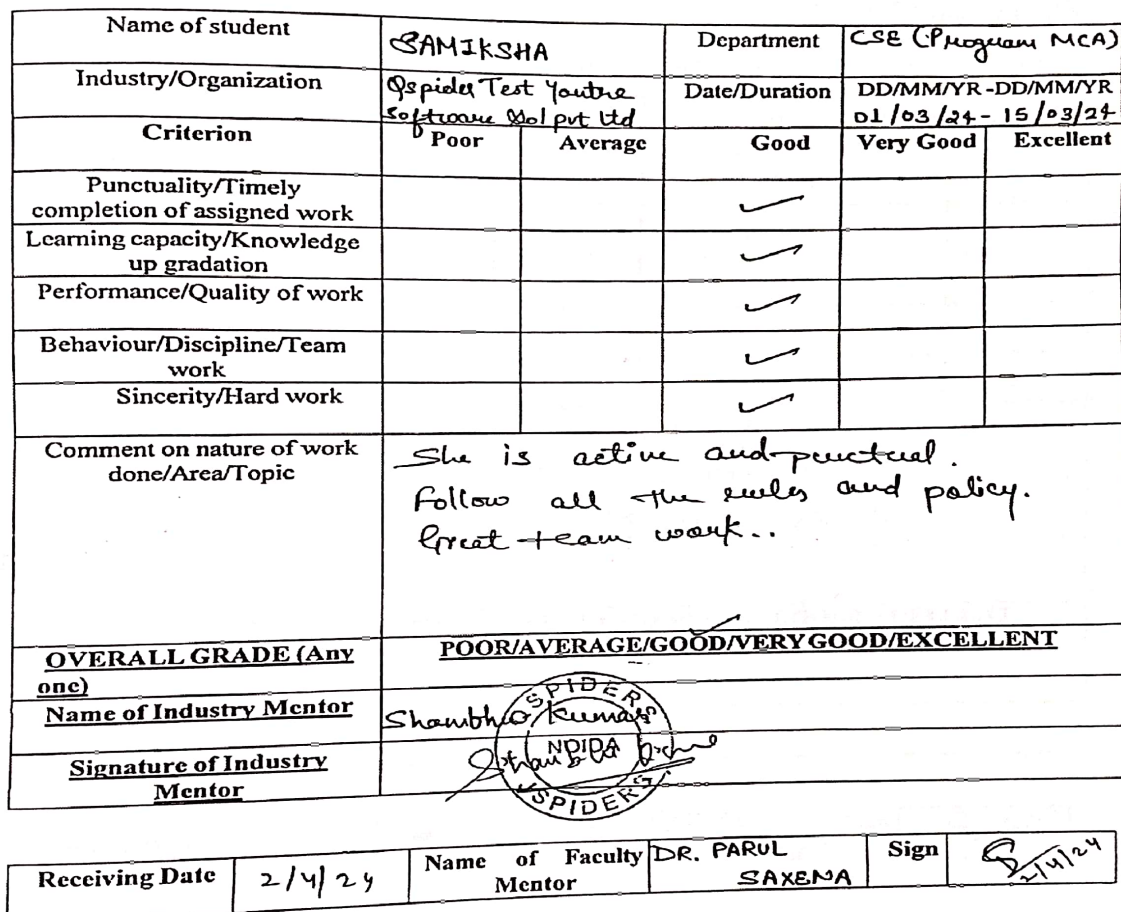 Name of student
SAMIKSHA
Department
CSE (Program MCA)
Industry/Organization
Qspider Test Yantra
Software Sol pvt ltd
Date/Duration
DD/MM/YR-DD/MM/YR
01/03/24- 15/03/24
Criterion
Poor
Average
Good
Very Good
Excellent
Punctuality/Timely
completion of assigned work
Learning capacity/Knowledge
up gradation
Performance/Quality of work
Behaviour/Discipline/Team
work
Sincerity/Hard work
Comment on nature of work
done/Area/Topic
She is active and punctual.
Follow all the rules and policy.
Great team work..
OVERALL GRADE (Any
one)
POOR/AVERAGE/GOOD/VERY GOOD/EXCELLENT
Name of Industry Mentor
Shambhu Kumar
Signature of Industry
Mentor
SPIDERS
NOIDA
SPIDERS
Receiving Date
2/4/24
Name of Faculty
Mentor
DR. PARUL
SAXENA
Sign
2/4/24